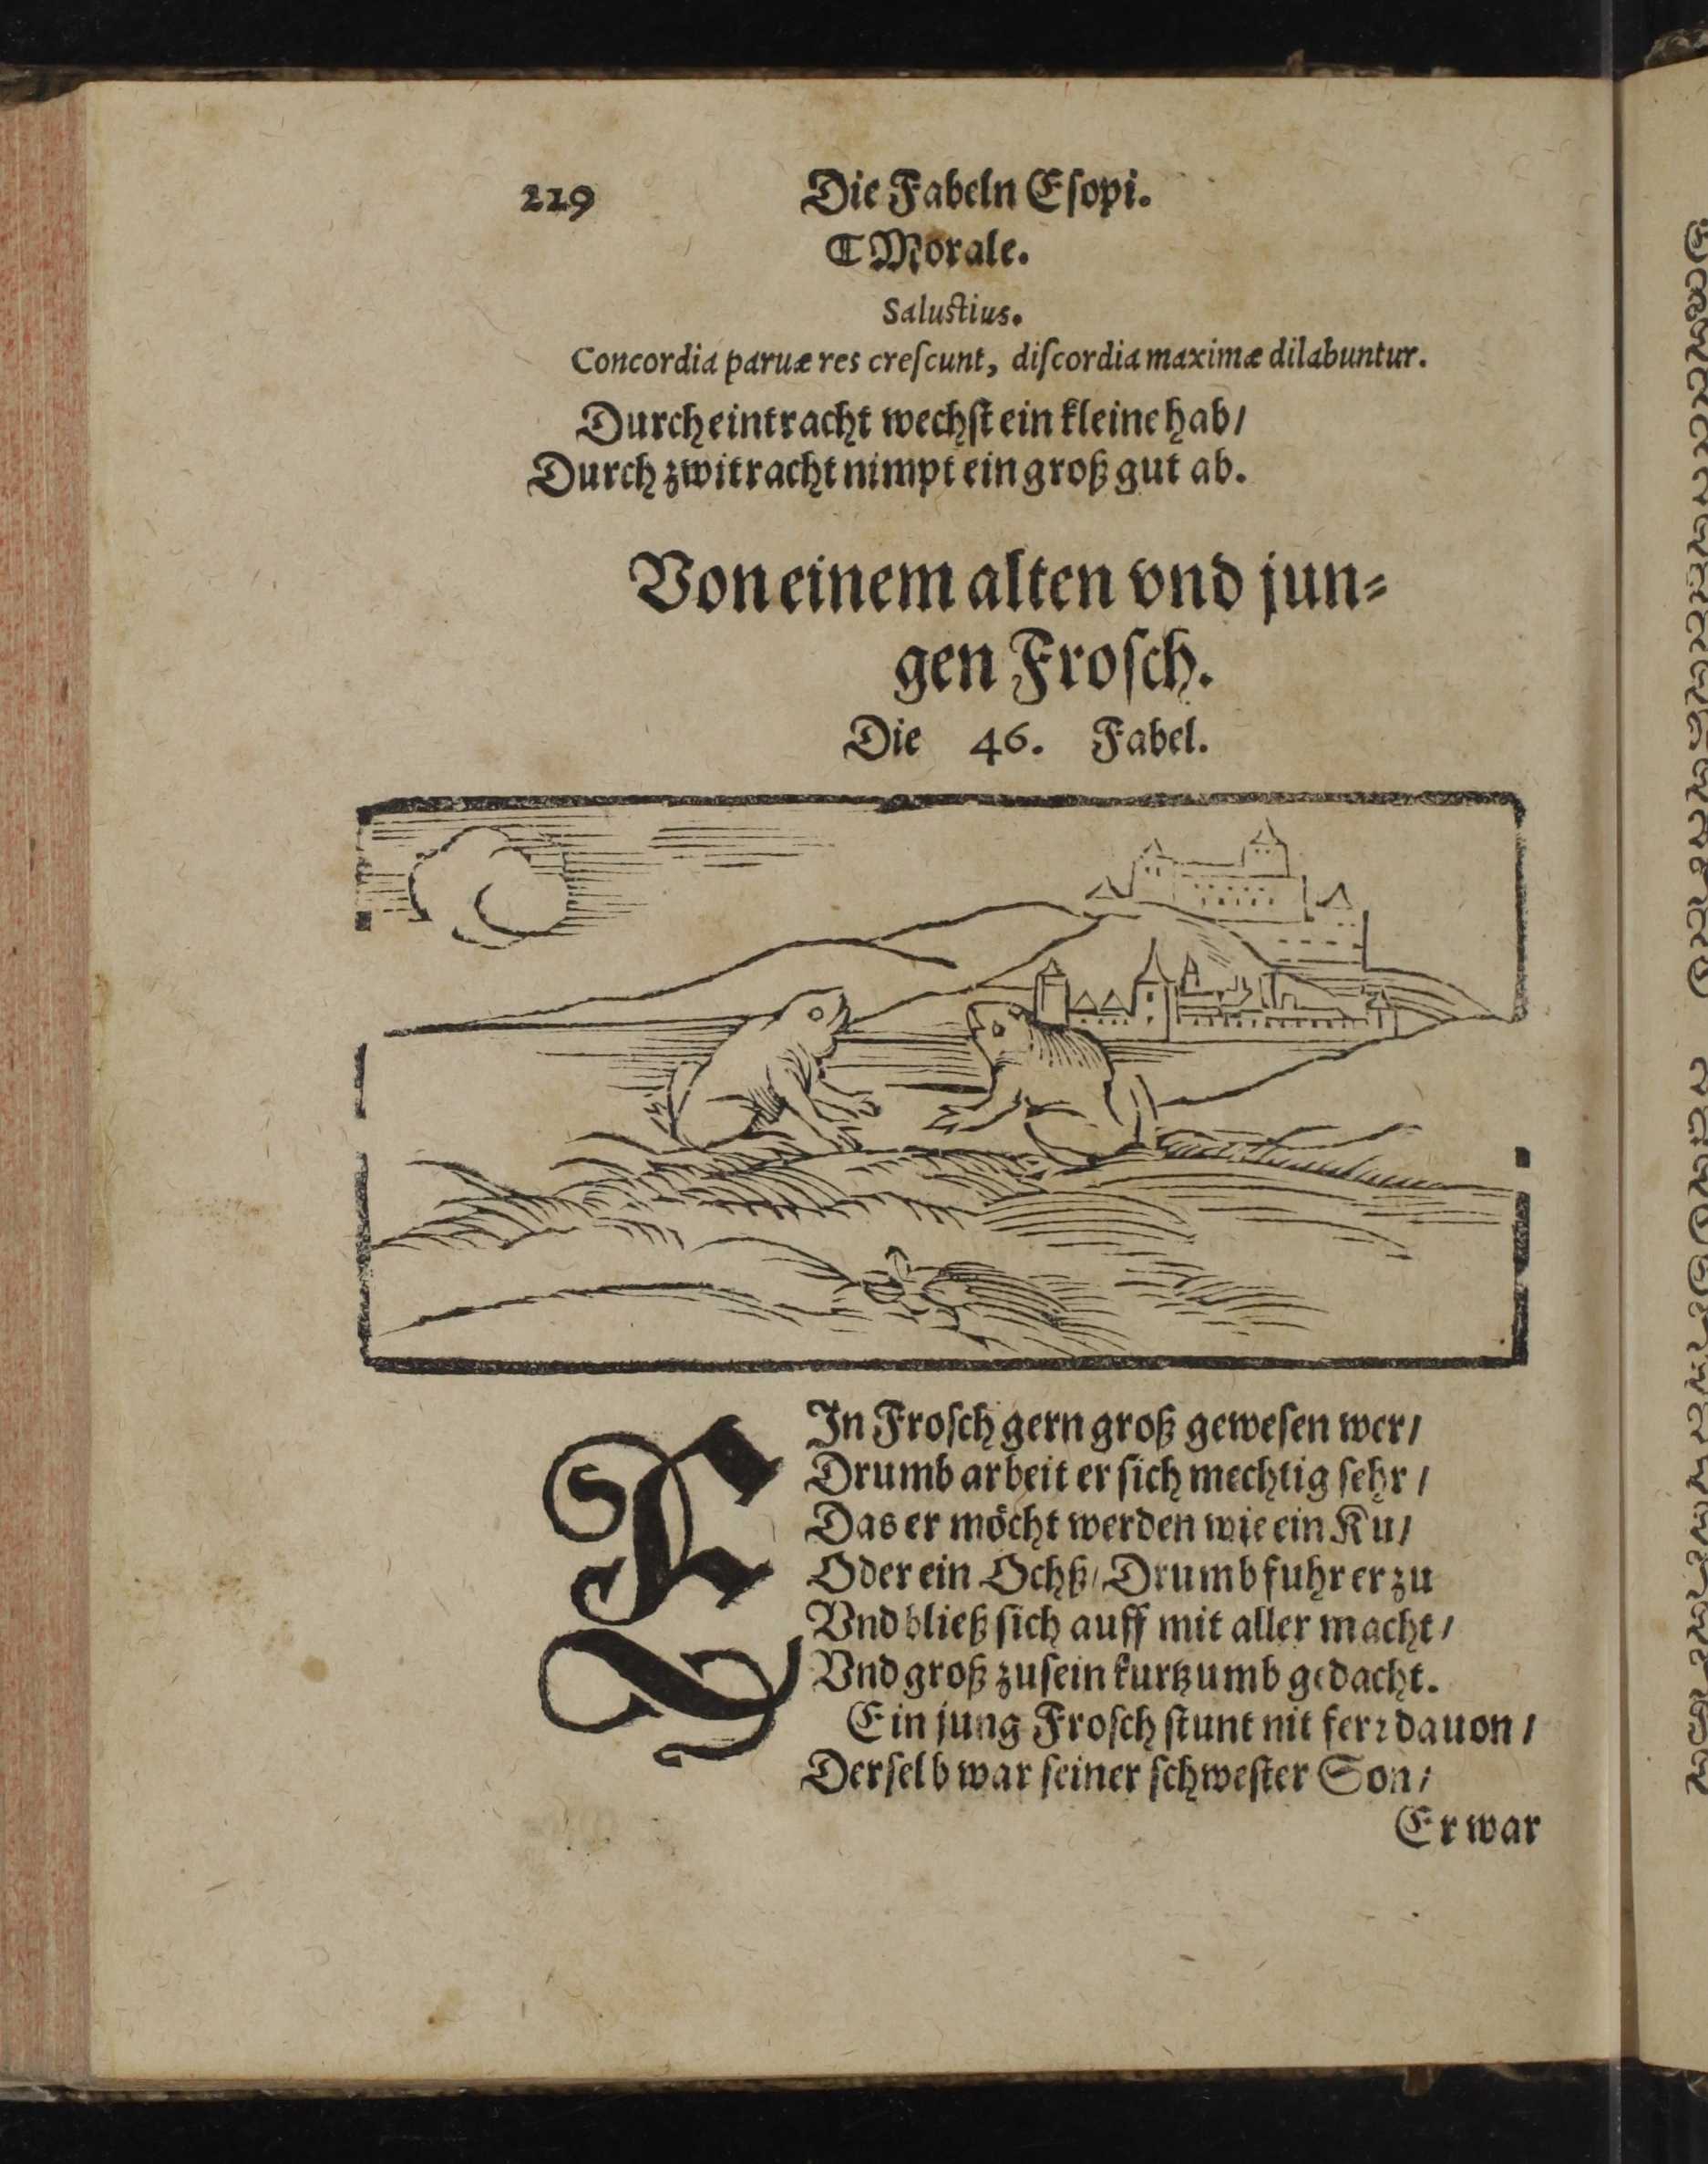 219 Die Fabeln Esopi.
¶ Morale.
Salustius.
Concordia paruæ res crescunt, discordia maximæ dilabuntur.
Durch eintracht wechst ein kleine hab /
Durch zwitracht nimpt ein groß gut ab.
Von einem alten vnd jun⸗
gen Frosch.
Die 46. Fabel.
EIn Frosch gern groß gewesen wer /
Drumb arbeit er sich mechtig sehr /
Das er möcht werden wie ein Ku /
Oder ein Ochß / Drumb fuhr er zu
Vnd bließ sich auff mit aller macht /
Vnd groß zusein kurtzumb gedacht.
Ein jung Frosch stunt nit ferr dauon /
Derselb war seiner schwester Son /
Er war